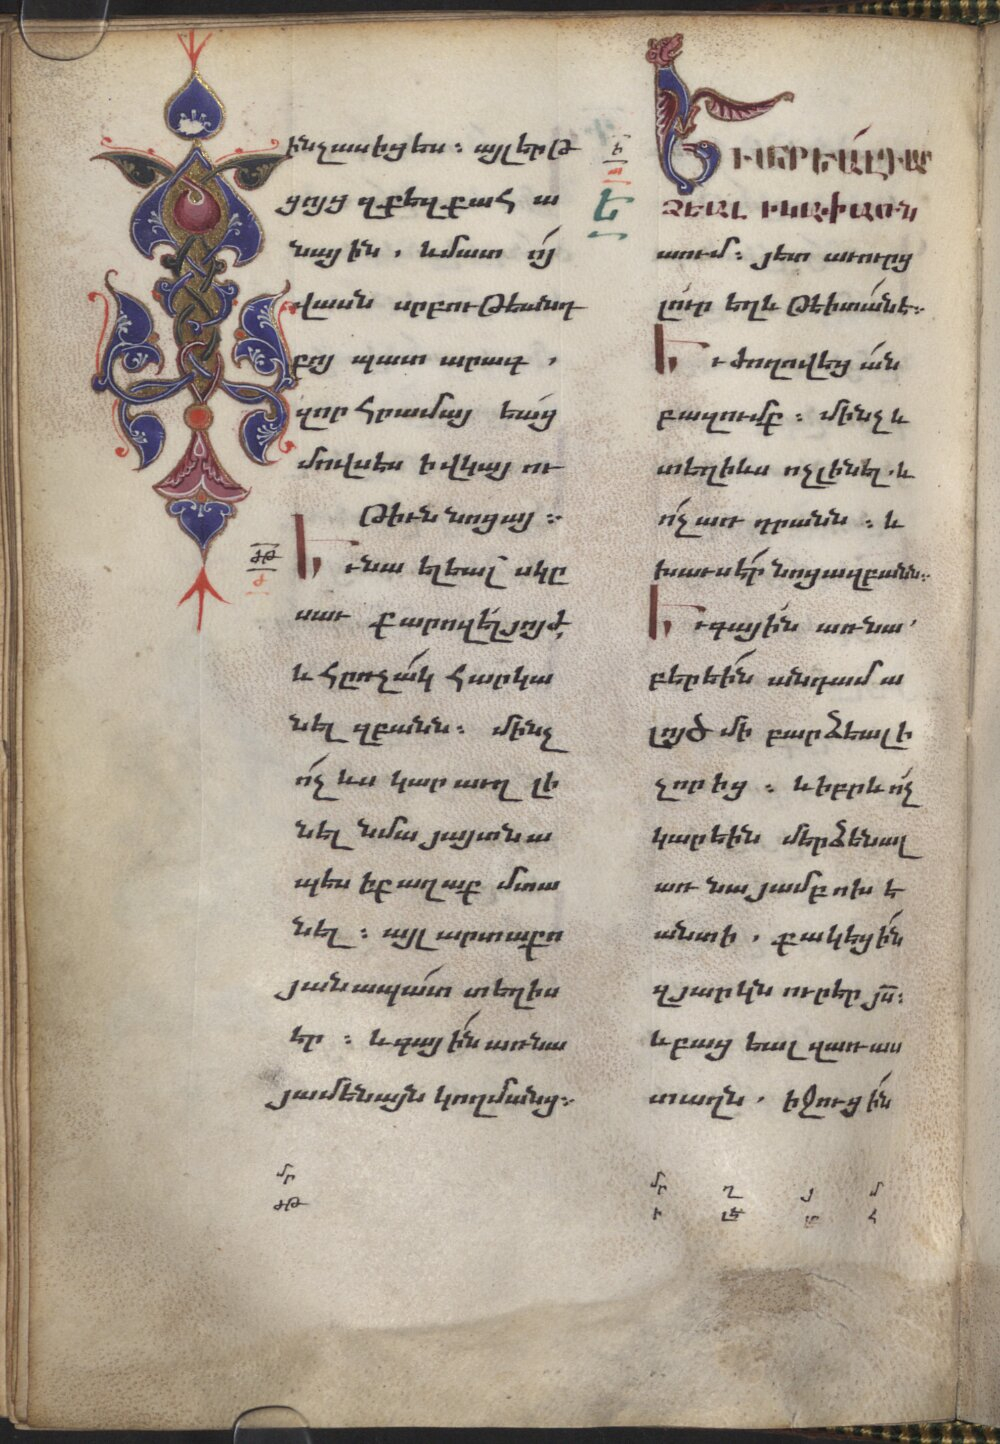 ինչ ասիցես ։ այլ երթ
ցոյց զքեզ քահա
նային ․ և մատո՛
վասն սրբութեանդ
քոյ պատարագ ․
զոր հրամայեաց
մովսէս ի վկայու
թիւն նոցա ։
Եւ նա ելեալ սկը
սաւ քարոզել յոյժ ․
և հըռչակ հարկա
նել զբանն ։ մինչ
ո՛չ ևս կարաւղ լի
նել նմա յայտնա
պես ի քաղաք մտա
նել ։ այլ արտաքո
յանապատ տեղիս
էր ։ և գային առ նա
յամենայն կողմանց ։
մր
ժթ
ժթ
ժ
ի
Ե
Եւ իբրև ել դա
ձեալ ի կափառն
աում ։ յետ աւուրց
լուր եղև թե ի տանէ ։
Եւ ժողովեցան
բազումք ։ մինչև
տեղի ևս ոչ լինել ․ և
ո՛չ առ դրանն ։ և
խաւսէր նոցա զբանն ։
Եւ գային առ նա ՛
բերեին անդամա
լոյծ մի բարձեալ ի
չորից ։ և իբրև ո՛չ
կարեին մերձենալ
առ նա յամբոխե
անտի ․ քակեցին
զյարկն ուր էր յս ։
և բացեալ զառաս
տաղն ․ իջուցին
մր ղ յ մ
ի լե հ